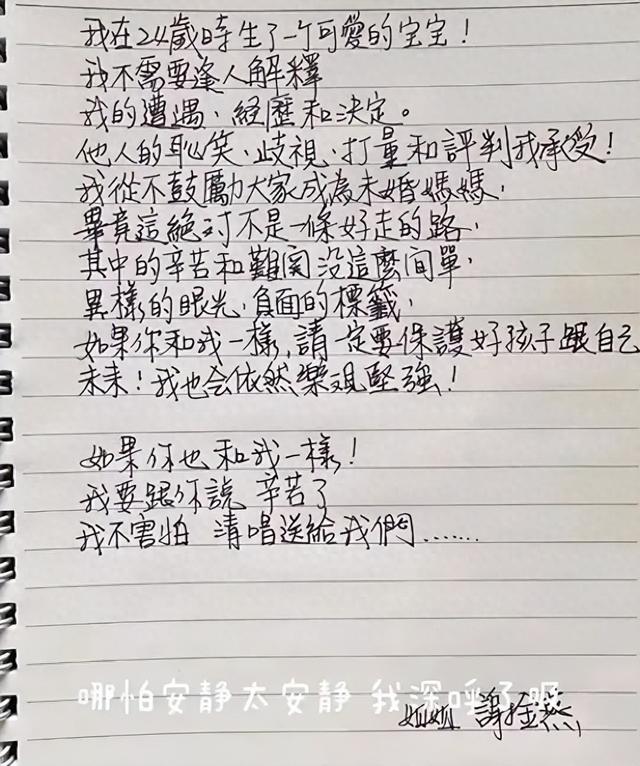 我在24歲時生了一个可愛的宝宝!
我不需要逢人解釋
我的遭遇、経歷和決定。
他人的恥笑、歧視、打量和評判我承受!
我從不鼓勵大家成為未婚媽媽,
畢竟這絕对不是一條好走的路,
其中的辛苦和難関没這麼簡單,
異樣的眼光、負面的標籤,
如果你和我一樣,請一定要保護好孩子跟自己
未來!我也会依然樂观堅強!
如果你也和我一樣!
我要跟你說 辛苦了
我不害怕 清唱送給我們.......
哪怕安靜太安靜 我深呼了
姐姐 謝金燕